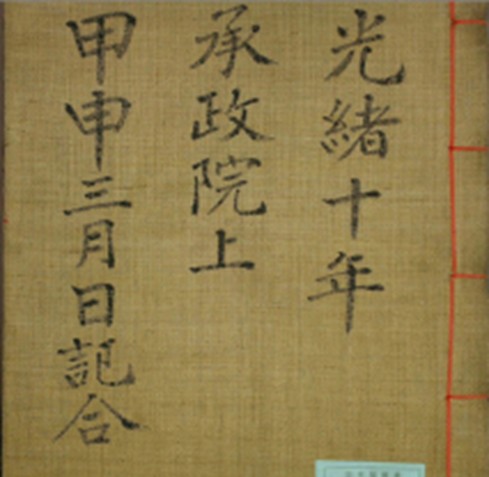 光緒十年
承政院上
甲申三月日記合